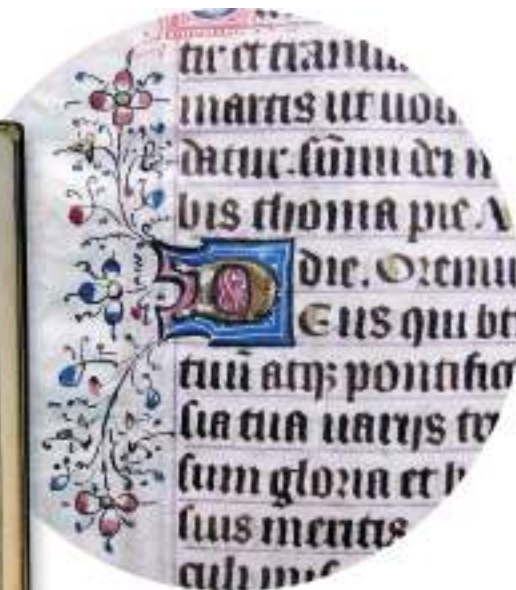 tir et
martis ut uou
datur. sūmi dei
bis thoma pie. A
die. Oremu
Eus qui be
tuū atqꝫ pontific
sia tua uarijs to
sum gloria et h
suis meritis